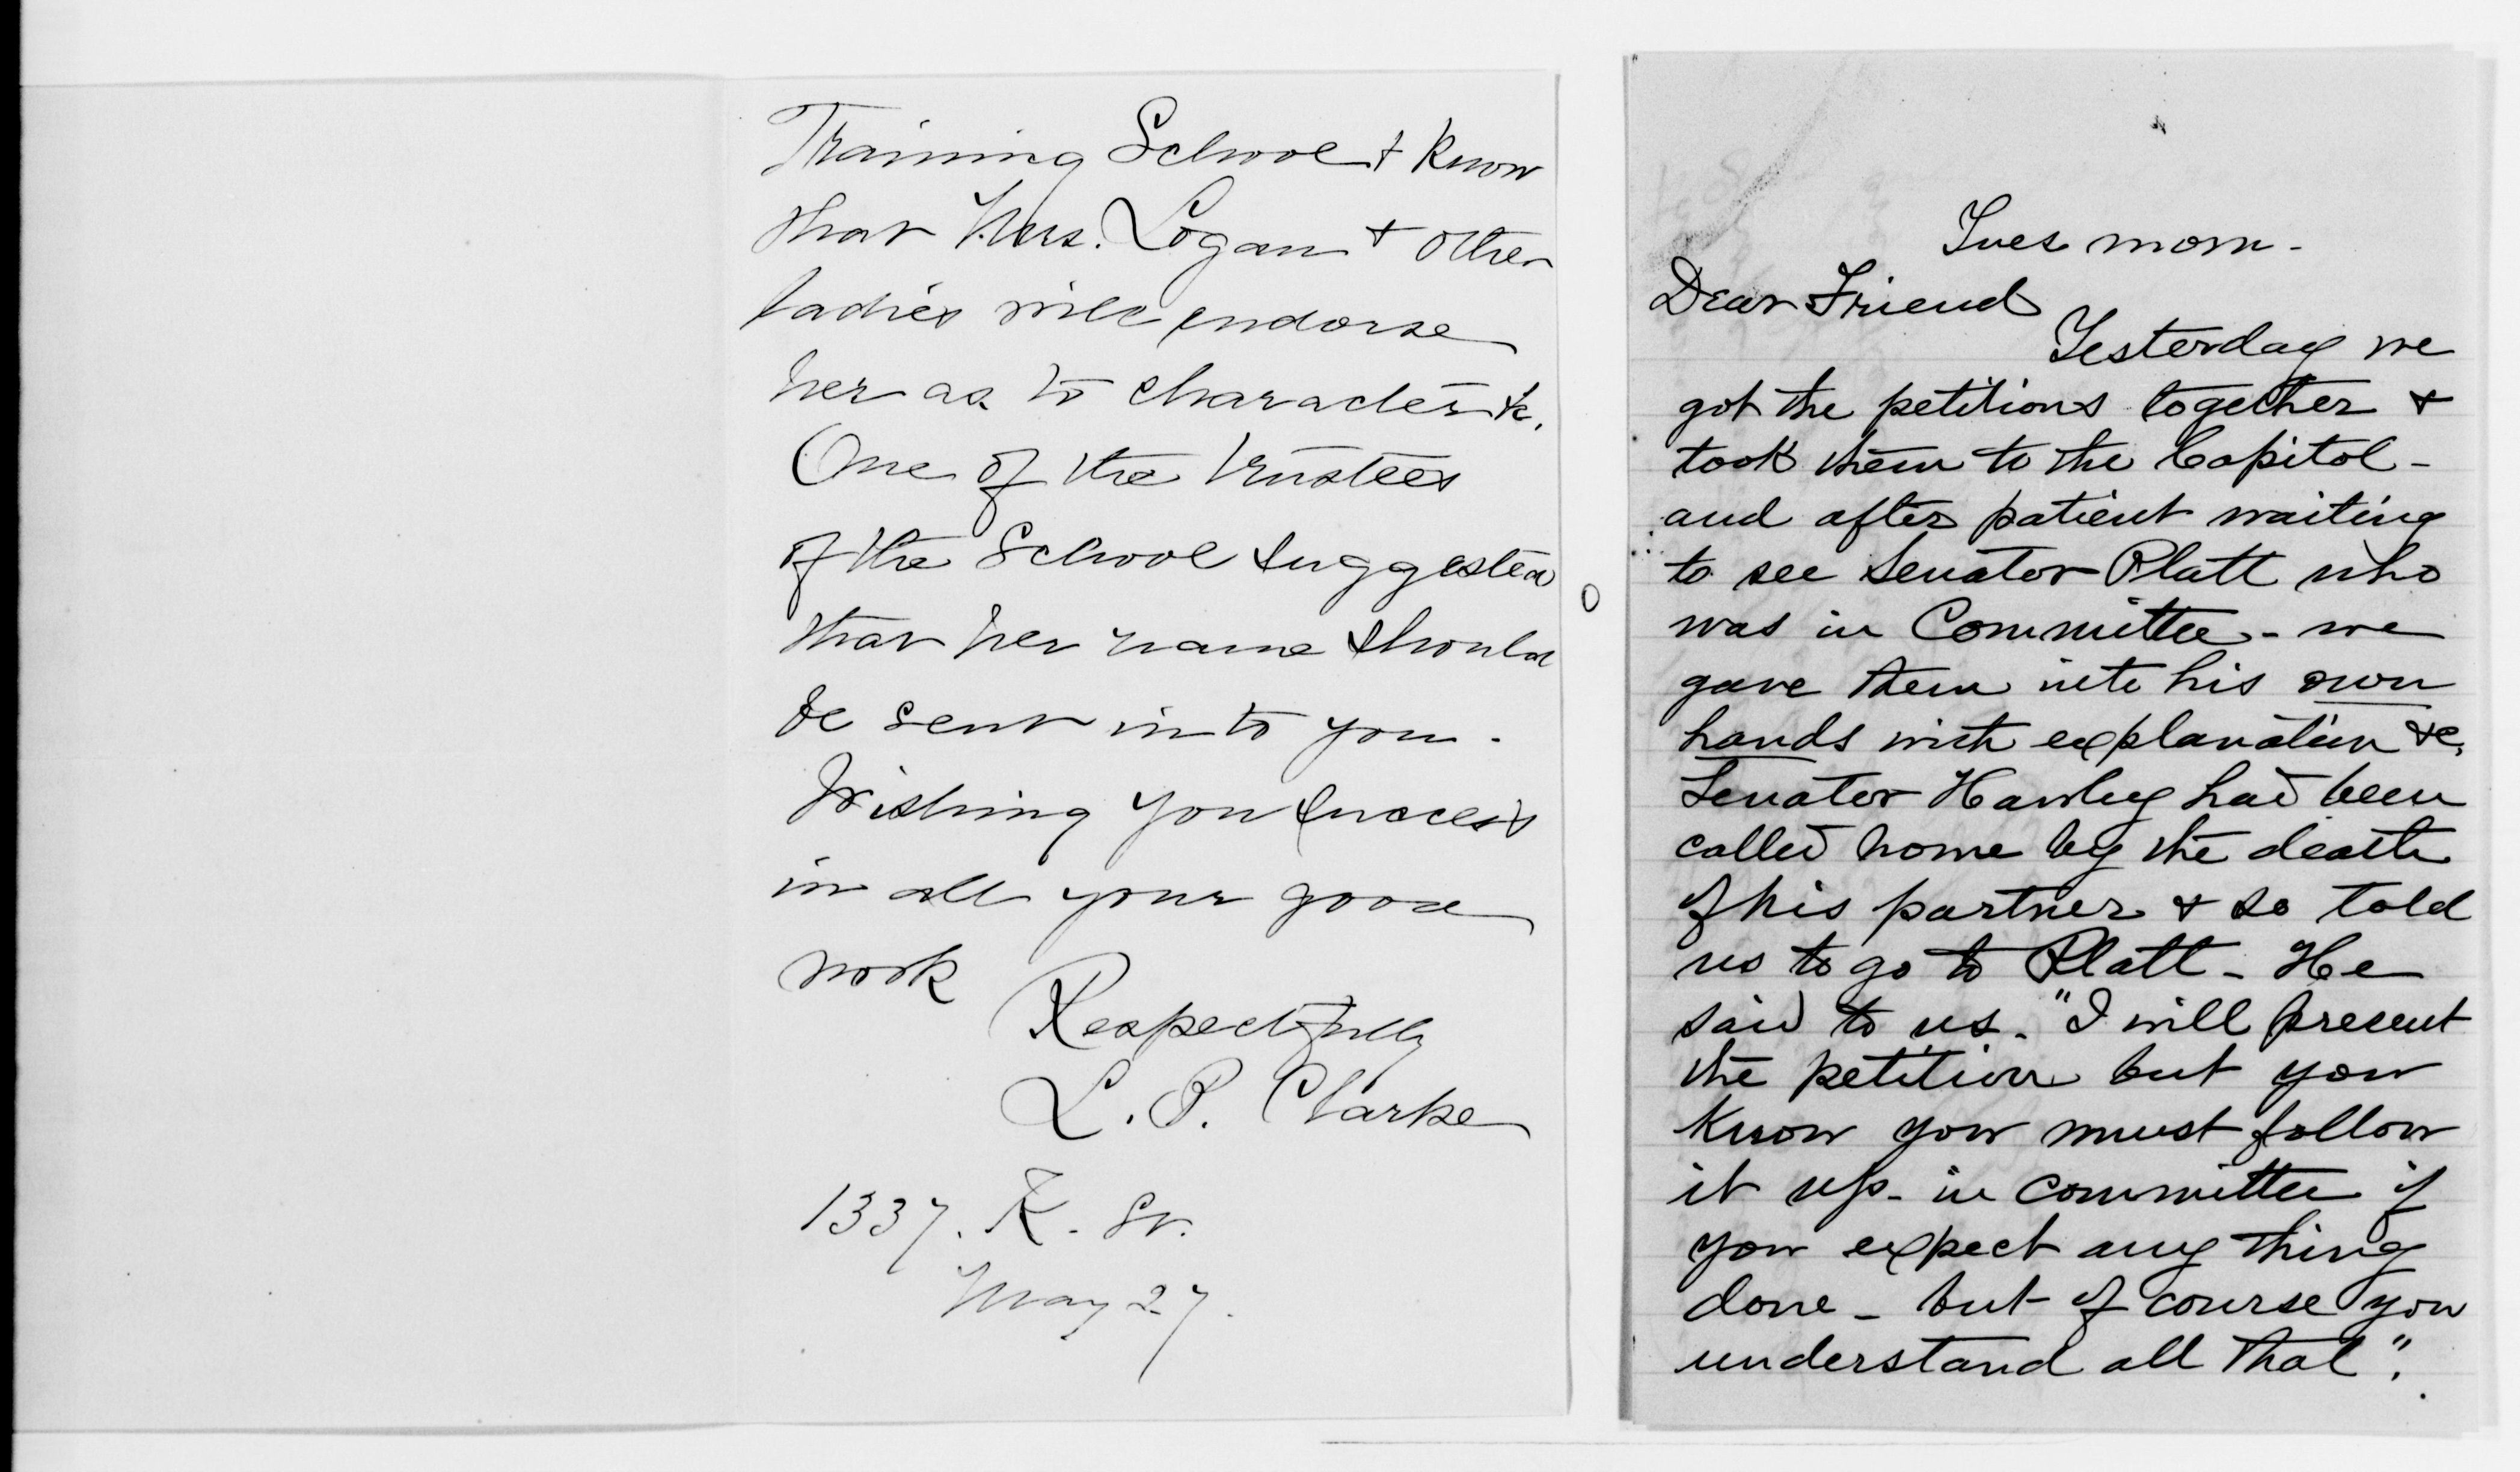 Training School & know
that Mrs. Logan & other
ladies will endorse
her as to character &c.
One of the trustees
of the School suggested
that her name should
be sent in to you.
Wishing you success
in all your good
work
Respectfully
L. P. Clarke
1337. K. St.
May 27.
Tues morn -
Dear Friend
Yesterday we
got the petitions together &
took them to the Capitol -
and after patient waiting
to see Senator Platt who
was in Committee - we
gave them into his own
hands with explanation &c,
Senator Hawley had been
called home by the death
of his partner & so told
us to go to Platt - He
said to us - "I will present
the petition but you
know you must follow
it up - in committee if
you expect any thing
done - but of course you
understand all that".